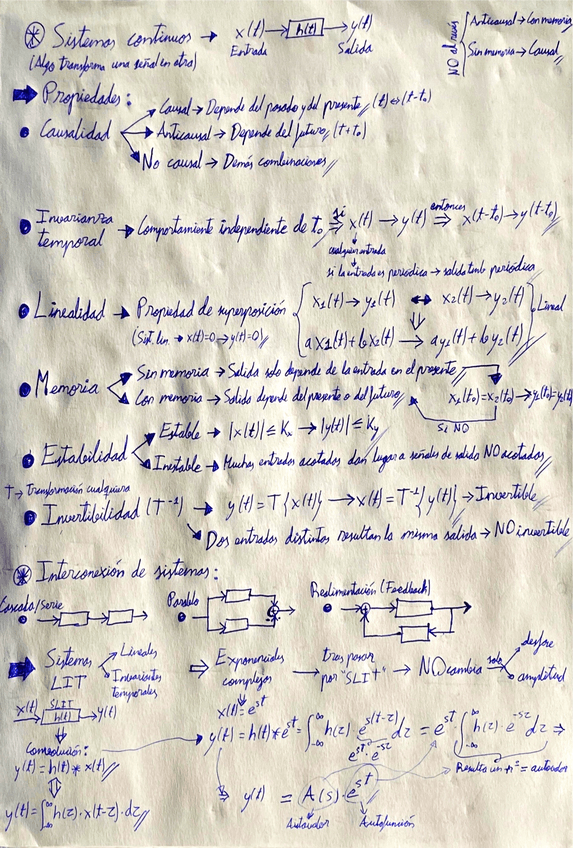 Sistemas continuos → x(t) → h(t) → y(t)
Entrada Salida
(Algo transforma una señal en otra)
NO al revés { Anticausal → Con memoria
Sin memoria → Causal
Propiedades:
Causalidad
Causal → Depende del pasado y del presente (t) ⇔ (t-t₀)
Anticausal → Depende del futuro (t+t₀)
No causal → Demás combinaciones
Invarianza temporal → Comportamiento independiente de t₀ ⇒ si x(t) → y(t) entonces ⇒ x(t-t₀) → y(t-t₀)
cualquier entrada
si la entrada es periódica → salida tmb periódica
Linealidad → Propiedad de superposición { x₁(t) → y₁(t) ↔ x₂(t) → y₂(t) } Lineal
(Sist. lin. → x(t)=0 → y(t)=0)
ax₁(t)+bx₂(t) → ay₁(t)+by₂(t)
Memoria
Sin memoria → Salida solo depende de la entrada en el presente
Con memoria → Salida depende del presente o del futuro
x₁(t₀)=x₂(t₀) → y₁(t₀)=y₂(t₀)
Si NO
Estabilidad
Estable → |x(t)| ≤ Kₓ → |y(t)| ≤ Kᵧ
Inestable → Muchas entradas acotadas dan lugar a señales de salida NO acotadas
T → Transformación cualquiera
Invertibilidad (T⁻¹) → y(t) = T{x(t)} → x(t) = T⁻¹{y(t)} → Invertible
Dos entradas distintas resultan la misma salida → NO invertible
Interconexión de sistemas:
Cascada/Serie Paralelo Realimentación (Feedback)
Sistemas LIT
Lineales
Invariantes temporales
Exponenciales complejas → tras pasar por "SLIT" → NO cambia solo
desfase
amplitud
x(t) → SLIT h(t) → y(t)
x(t) = e^{st}
Convolución:
y(t) = h(t) * x(t)
y(t) = h(t) * e^{st} = ∫_{-∞}^{∞} h(τ) · e^{s(t-τ)} dτ = e^{st} · ∫_{-∞}^{∞} h(τ) · e^{-sτ} dτ ⇒
e^{st} · e^{-sτ}
Resulta un nº = autovalor
y(t) = ∫_{-∞}^{∞} h(τ) · x(t-τ) · dτ
⇒ y(t) = A(s) · e^{st}
Autovalor Autofunción